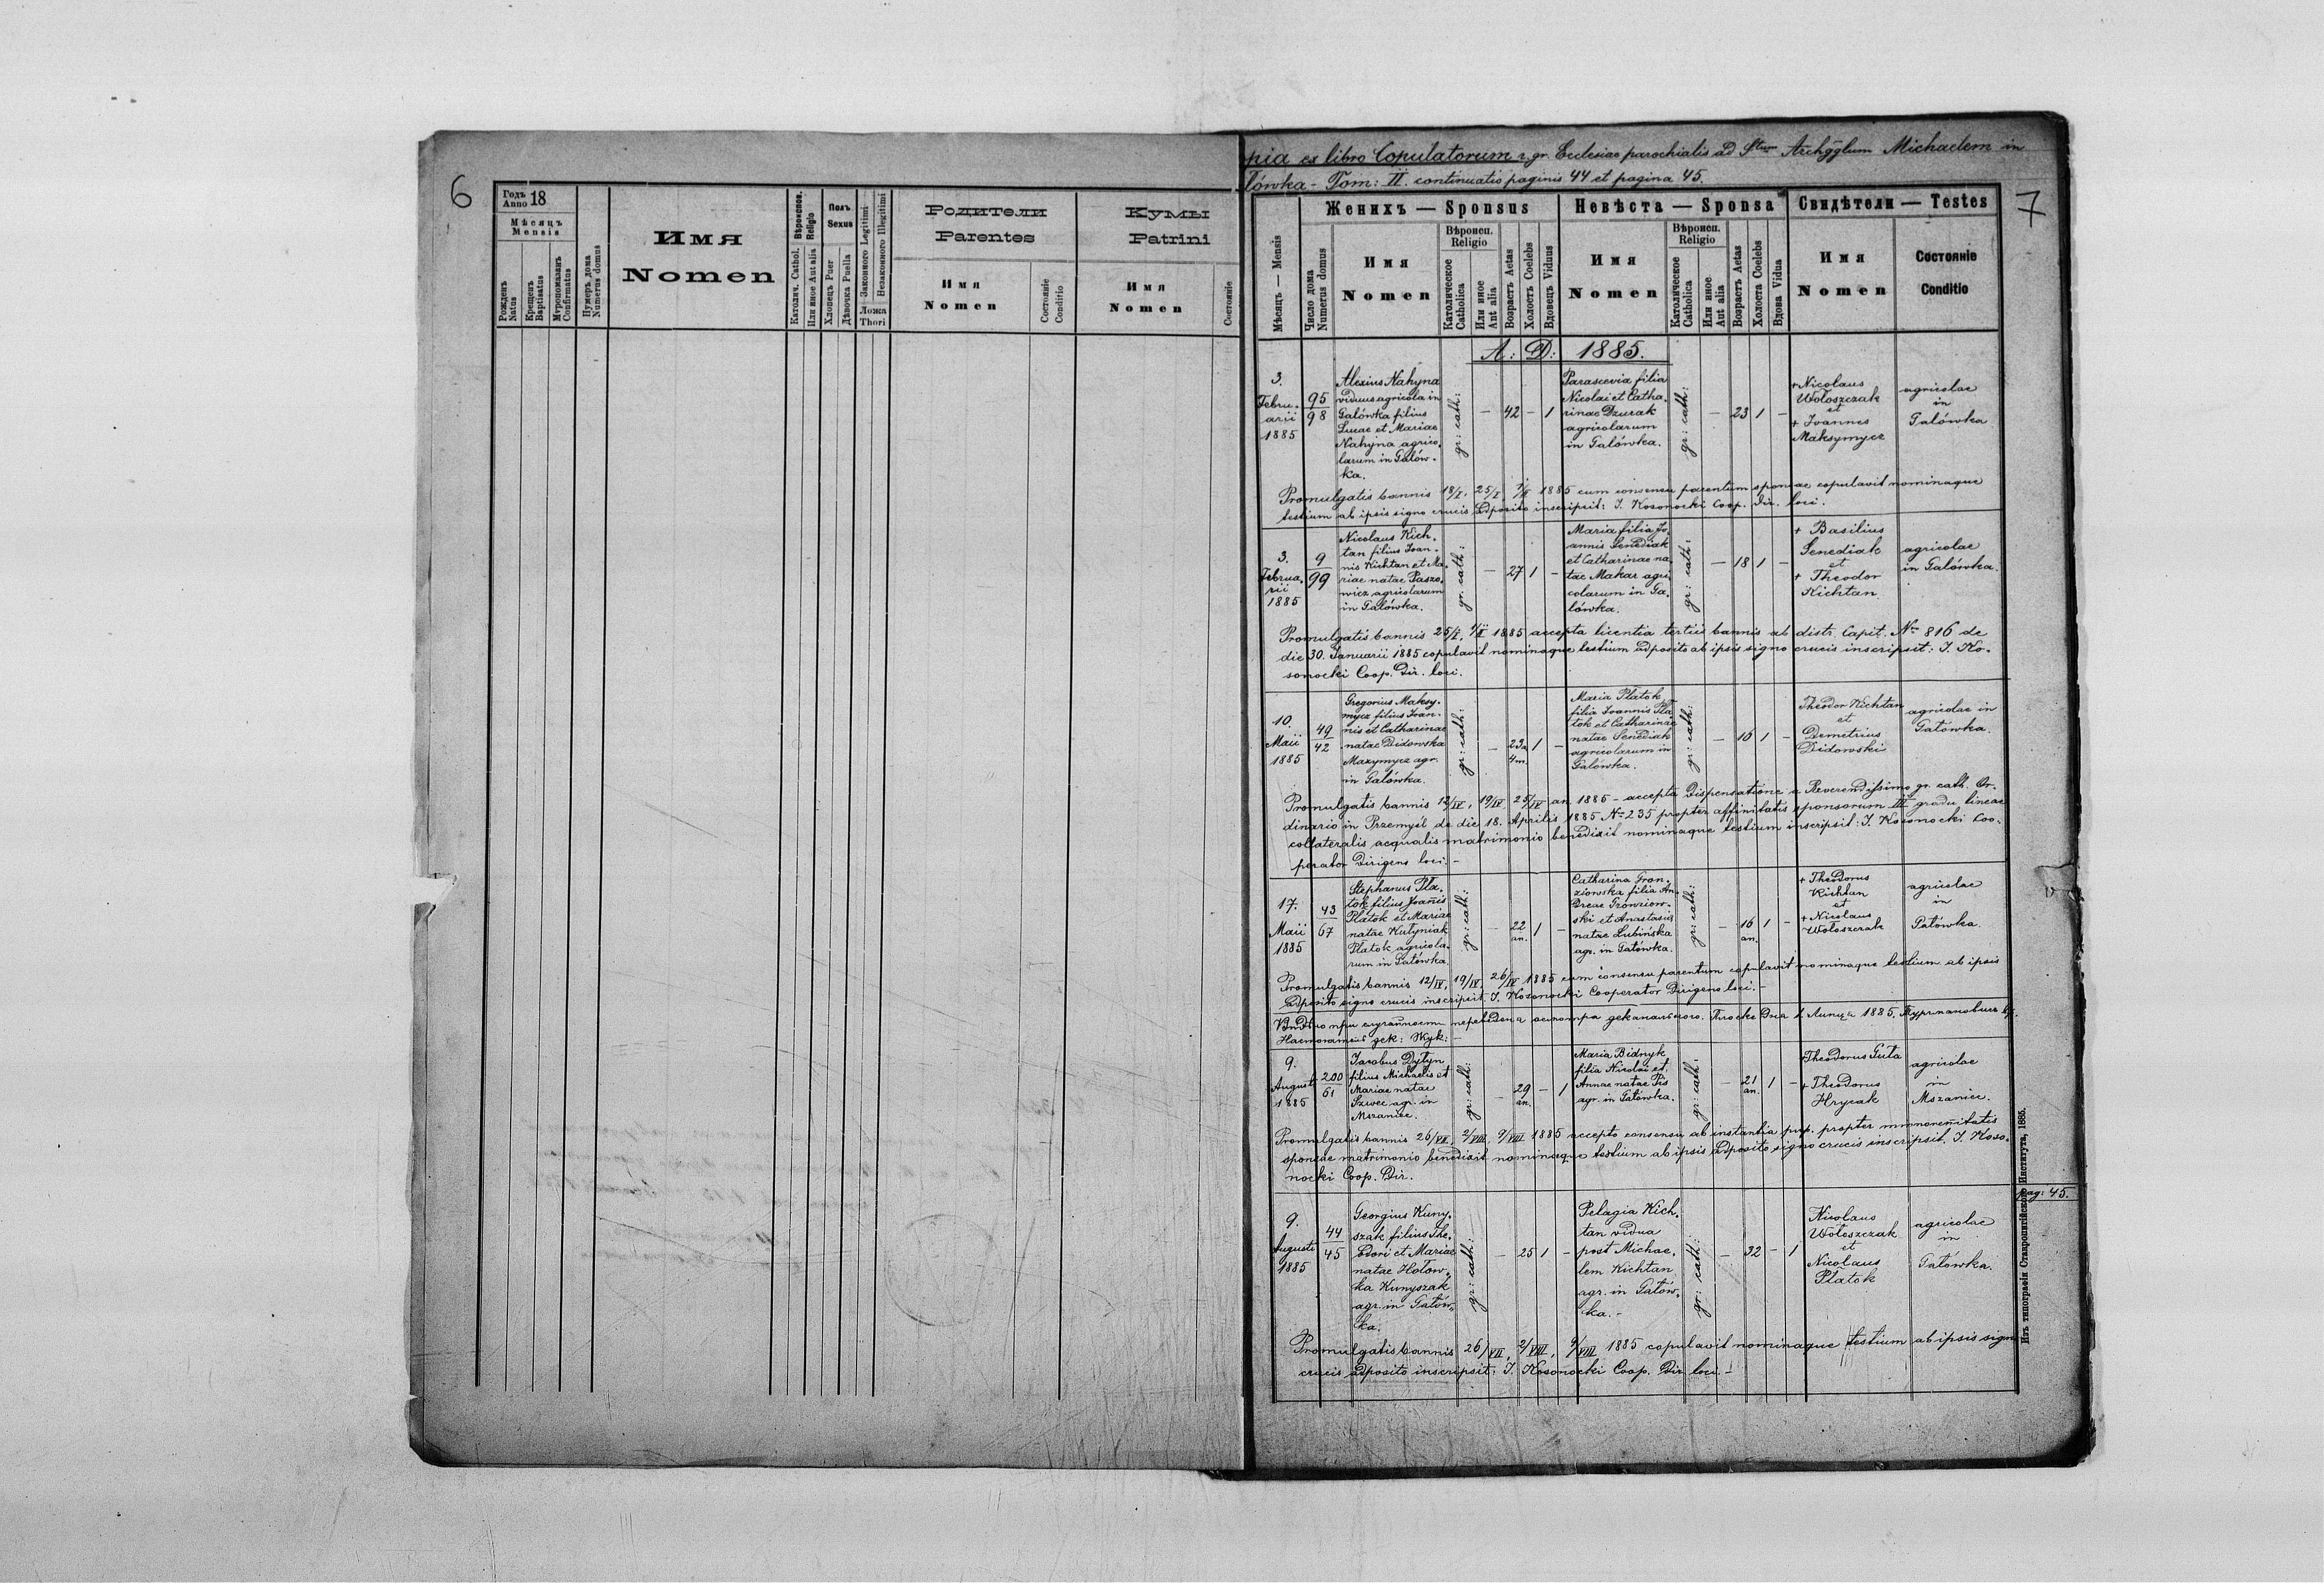 6
Годъ 18
Anno
Мѣсяцъ
Mensis
Рожденъ
Natus
Крещенъ
Baptisatus
Мѵропомазанъ
Confirmatus
Нумеръ дома
Numerus domus
Имя
Nomen
Вѣроиспов.
Religio
Католич. Cathol.
Или иное Aut alia
Полъ
Sexus
Хлопецъ Puer
Дѣвочка Puella
Законного Legitimi
Незаконного Illegitimi
Ложа
Thori
Родители
Parentes
Имя
Nomen
Состояніе
Conditio
Кумы
Patrini
Имя
Nomen
Состояніе
pia ex libro Copulatorum r. gr. Ecclesiae parochialis ad Stum Archgglum Michaelem in
lówka - Tom: II. continuatio paginis 44 et pagina 45.
7
Женихъ — Sponsus
Невѣста — Sponsa
Свидѣтели — Testes
Мѣсяцъ — Mensis
Число дома
Numerus domus
Имя
Nomen
Вѣроисп.
Religio
Католическое
Catholica
Или иное
Aut alia
Возрастъ Aetas
Холостъ Coelebs
Вдовецъ Viduus
Имя
Nomen
Вѣроисп.
Religio
Католическое
Catholica
Или иное
Aut alia
Возрастъ Aetas
Холоста Coelebs
Вдова Vidua
Имя
Nomen
Состояніе
Conditio
A: D: 1885.
3.
Febru-
arii
1885
95
98
Alexius Nahyna
viduus agricola in
Galówka filius
Lucae et Mariae
Nahyna agrico-
larum in Galów-
ka.
gr: cath:
– 42 – 1
Parascevia filia
Nicolai et Catha-
rinae Dzurak
agricolarum
in Galówka.
gr: cath:
– 23 1 –
+ Nicolaus
Wołoszczak
et
+ Joannes
Maksymycz
agricolae
in
Galówka
Promulgatis bannis 18/I, 25/I, 1/II 1885 cum consensu parentum sponsae copulavit nominaque
testium ab ipsis signo crucis adposito inscripsit: J. Kosonocki Coop. Dir. loci.
3.
Februa-
rii
1885
9
99
Nicolaus Kich-
tan filius Joan-
nis Kichtan et Ma-
riae natae Paszo-
wicz agricolarum
in Galówka.
gr. cath:
– 27 1 –
Maria filia Jo-
annis Senediak
et Catharinae na-
tae Makar agri-
colarum in Ga-
lówka.
gr: cath:
– 18 1 –
+ Basilius
Senediak
et
+ Theodor
Kichtan
agricolae
in Galówka.
Promulgatis bannis 25/I, 1/II 1885 accepta licentia tertiis bannis ab distr. Capit. Nro 816 de
die 30. Januarii 1885 copulavit nominaque testium adposito ab ipsis signo crucis inscripsit: J. Ko-
sonocki Coop. Dir. loci.
10.
Maii
1885
49
42
Gregorius Maksy-
mycz filius Joan-
nis et Catharinae
natae Didowska
Maxymycz agr.
in Galówka.
gr: cath:
– 23a 1 –
4m.
Maria Płatok
filia Joannis Pła-
tok et Catharinae
natae Senediak
agricolarum in
Galówka.
gr: cath:
– 16 1 –
Theodor Kichtan
et
Demetrius
Didowski
agricolae in
Gałówka.
Promulgatis bannis 12/IV, 19/IV 25/IV an 1885 – accepta Dispensatione a Reverendissimo gr. cath. Or-
dinario in Przemyśl de die 18. Aprilis 1885 No 235 propter affinitatis sponsorum III gradu lineae
collateralis aequalis matrimonio benedixit nominaque testium inscripsit: J. Kosonocki Coo-
perator Dirigens loci. –
17.
Maii
1885
43
67
Stephanus Pła-
tok filius Joannis
Płatok et Mariae
natae Kutyniak
Płatok agricola-
rum in Gałówka
gr: cath:
– 22 1 –
an.
Catharina Gron-
ziowska filia An-
dreae Gronziow-
ski et Anastasia
natae Łubińska
agr. in Gałówka.
gr: cath:
– 16 1 –
an.
+ Theodorus
Kichtan
et
+ Nicolaus
Wołoszczak
agricolae
in
Gałówka.
Promulgatis bannis 12/IV, 19/IV 26/IV 1885 cum consensu parentum copulavit nominaque testium ab ipsis
adposito signo crucis inscripsit. J. Kosonocki Cooperator Dirigens loci. –
9.
Augusti
1885
200
61
Jacobus Dytyn
filius Michaelis et
Mariae natae
Szwec agr. in
Mszaniec.
gr: cath:
– 29 – 1
an.
Maria Bidnyk
filia Nicolai et
Annae natae Pis
agr. in Gałówka.
gr: cath:
– 21 1 –
an.
Theodorus Guta
+ Theodorus
Hrycak
agricolae
in
Mszaniec.
Promulgatis bannis 26/VII, 2/VIII, 9/VIII 1885 accepto consensu ab instantia pup. propter minorennitatis
sponsae matrimonio benedixit nominaque testium ab ipsis adposito signo crucis inscripsit. J. Koso-
nocki Coop. Dir.
pag: 45.
9.
Augusti
1885
44
45
Georgius Kuny-
szak filius The-
odori et Mariae
natae Hołow-
ka Kunyszak
agr. in Gałów-
ka.
gr: cath:
– 25 1 –
Pelagia Kich-
tan vidua
post Michae-
lem Kichtan
agr. in Gałów-
ka. –
gr: cath:
– 32 – 1
Nicolaus
Wołoszczak
et
Nicolaus
Płatok
agricolae
in
Gałówka.
Promulgatis bannis 26/VII, 2/VIII, 9/VIII 1885 copulavit nominaque testium ab ipsis signo
crucis adposito inscripsit: J. Kosonocki Coop. Dir loci. –
Изъ типографіи Ставропигійского Института, 1885.